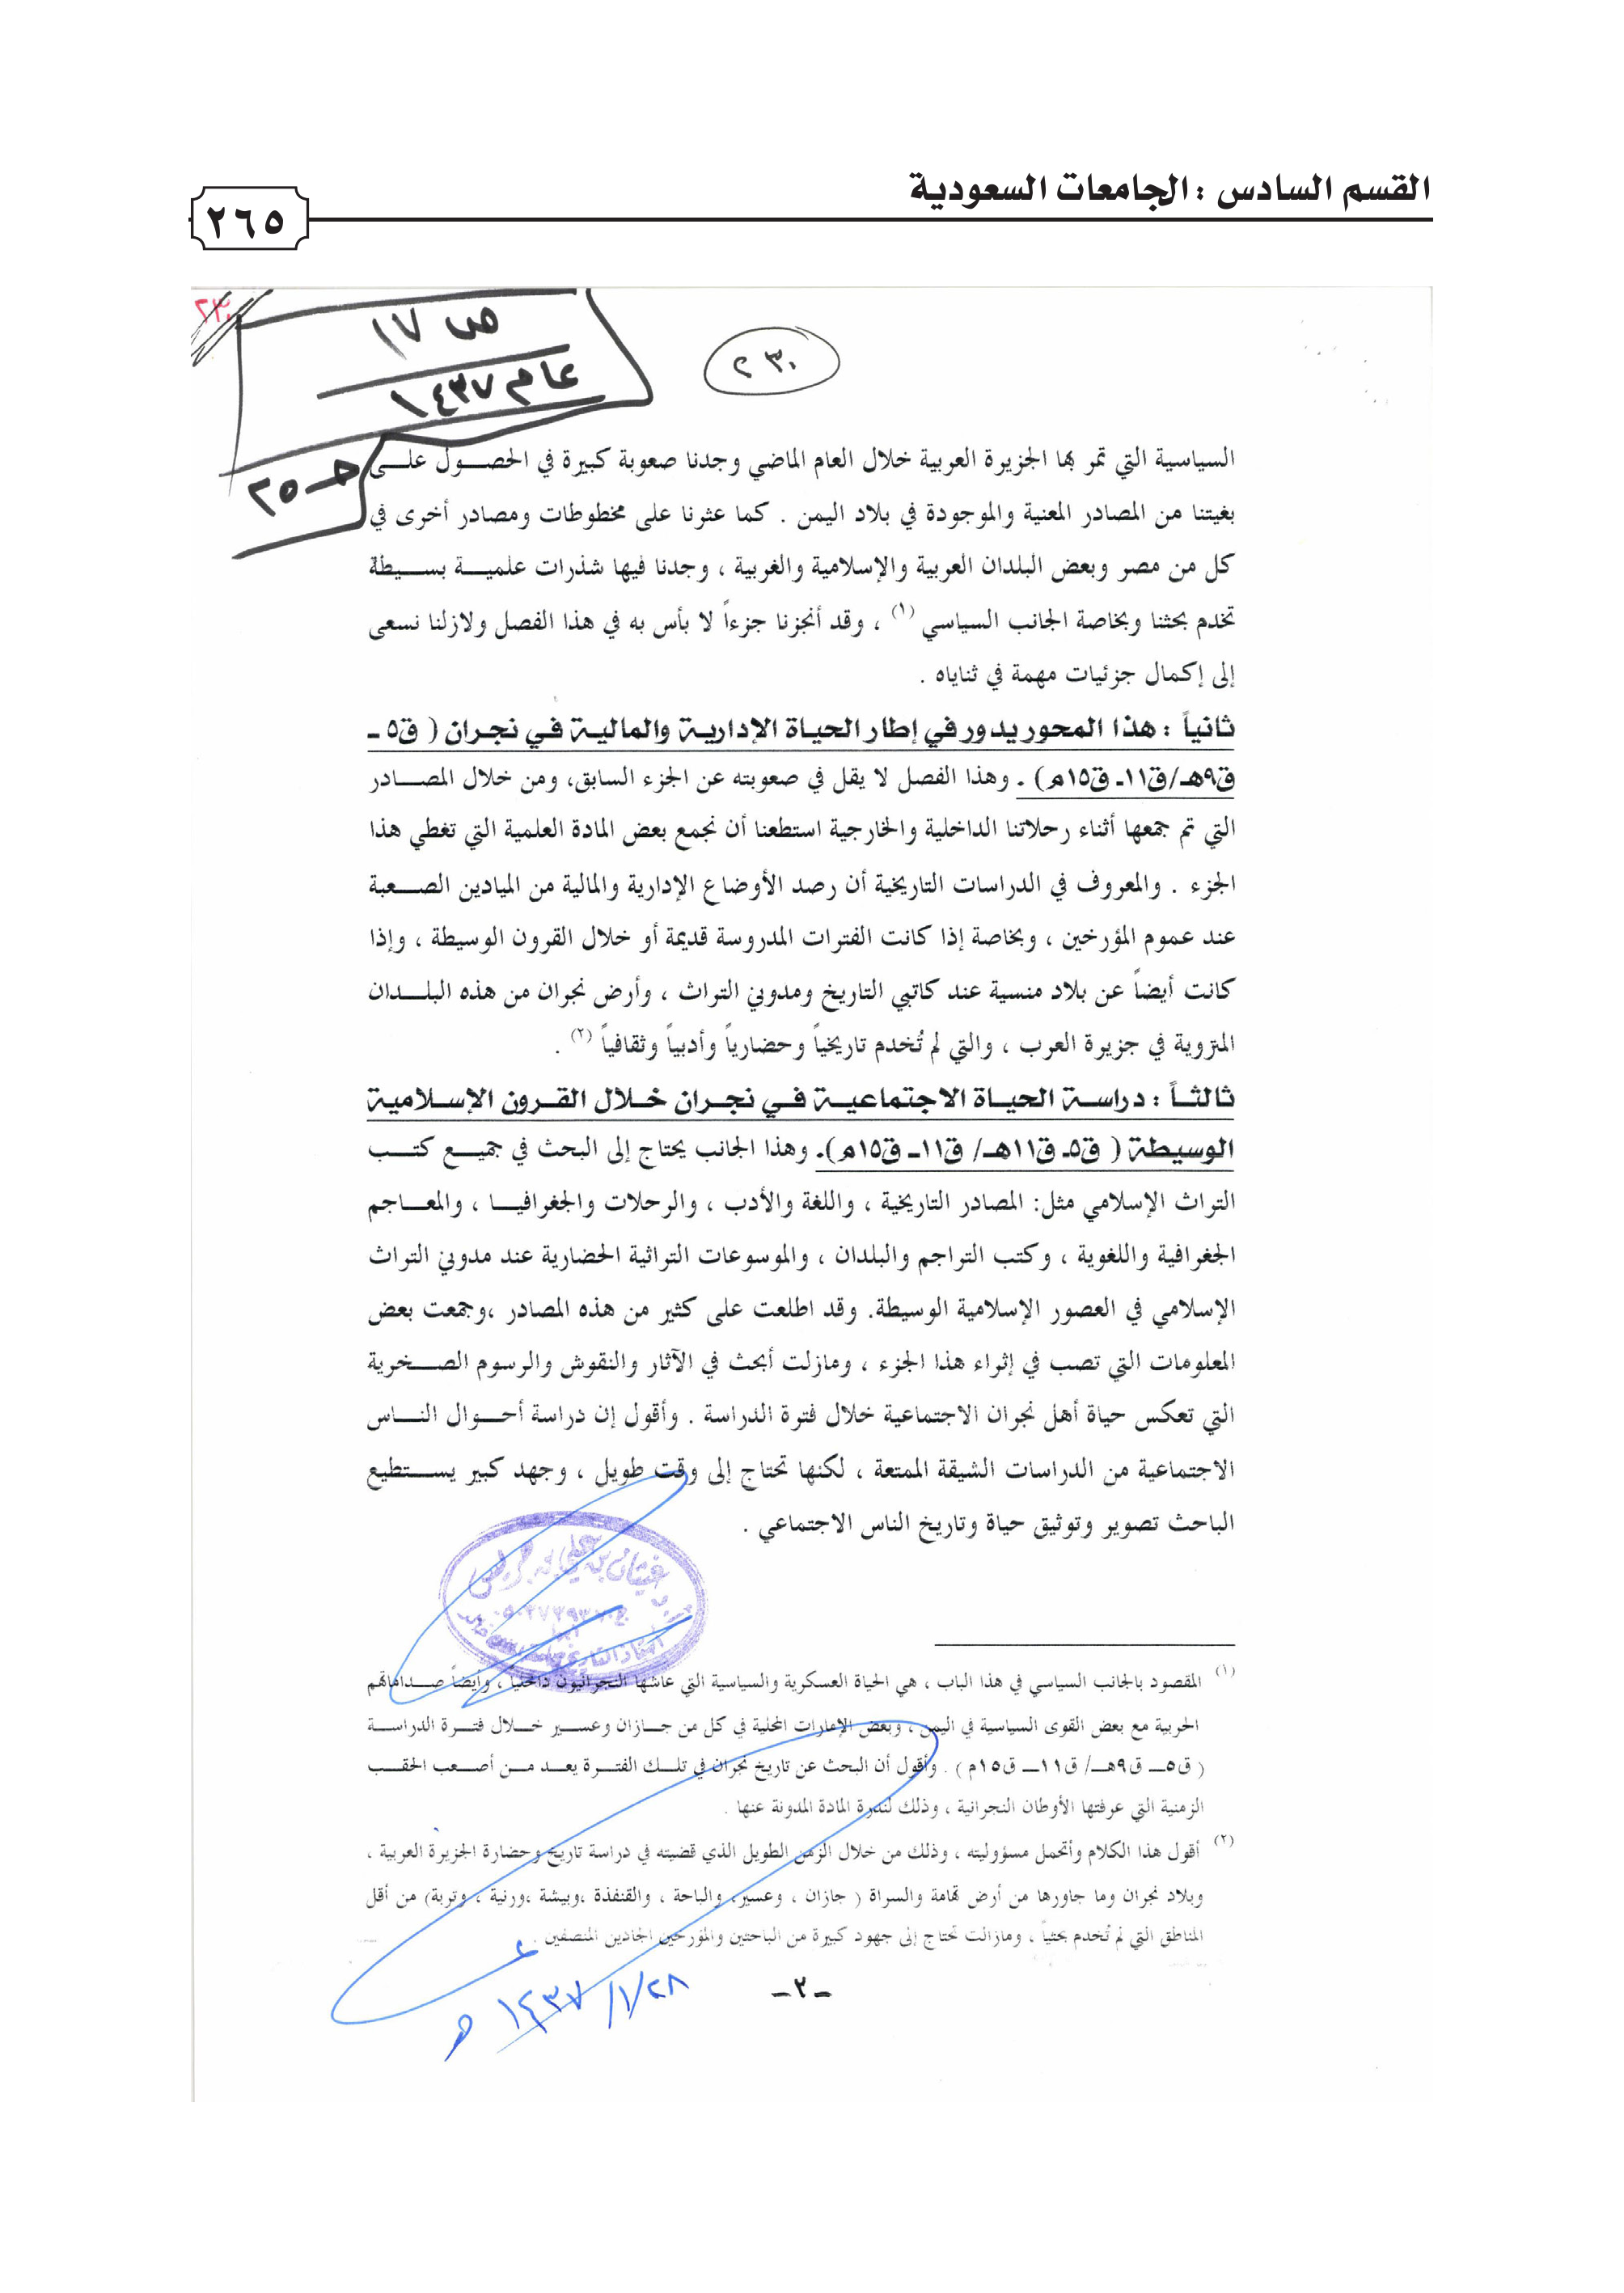 القسم السادس : الجامعات السعودية
٢٦٥
٢٣٠
ص ١٧
عام ١٤٣٧
حـ ٢٥
٢٣٠
السياسية التي تمر بها الجزيرة العربية خلال العام الماضي وجدنا صعوبة كبيرة في الحصول على
بغيتنا من المصادر المعنية والموجودة في بلاد اليمن . كما عثرنا على مخطوطات ومصادر أخرى في
كل من مصر وبعض البلدان العربية والإسلامية والغربية ، وجدنا فيها شذرات علمية بسيطة
تخدم بحثنا وبخاصة الجانب السياسي (١) ، وقد أنجزنا جزءاً لا بأس به في هذا الفصل ولازلنا نسعى
إلى إكمال جزئيات مهمة في ثناياه .
ثانياً : هذا المحور يدور في إطار الحياة الإدارية والمالية في نجران ( ق٥ ـ
ق٩هـ/ق١١ـ ق١٥م) . وهذا الفصل لا يقل في صعوبته عن الجزء السابق، ومن خلال المصادر
التي تم جمعها أثناء رحلاتنا الداخلية والخارجية استطعنا أن نجمع بعض المادة العلمية التي تغطي هذا
الجزء . والمعروف في الدراسات التاريخية أن رصد الأوضاع الإدارية والمالية من الميادين الصعبة
عند عموم المؤرخين ، وبخاصة إذا كانت الفترات المدروسة قديمة أو خلال القرون الوسيطة ، وإذا
كانت أيضاً عن بلاد منسية عند كاتبي التاريخ ومدوني التراث ، وأرض نجران من هذه البلدان
المنزوية في جزيرة العرب ، والتي لم تُخدم تاريخياً وحضارياً وأدبياً وثقافياً (٢) .
ثالثاً : دراسة الحياة الاجتماعية في نجران خلال القرون الإسلامية
الوسيطة ( ق٥ـ ق١١هـ/ ق١١ـ ق١٥م). وهذا الجانب يحتاج إلى البحث في جميع كتب
التراث الإسلامي مثل: المصادر التاريخية ، واللغة والأدب ، والرحلات والجغرافيا ، والمعاجم
الجغرافية واللغوية ، وكتب التراجم والبلدان ، والموسوعات التراثية الحضارية عند مدوني التراث
الإسلامي في العصور الإسلامية الوسيطة. وقد اطلعت على كثير من هذه المصادر ،وجمعت بعض
المعلومات التي تصب في إثراء هذا الجزء ، ومازلت أبحث في الآثار والنقوش والرسوم الصخرية
التي تعكس حياة أهل نجران الاجتماعية خلال فترة الدراسة . وأقول إن دراسة أحوال الناس
الاجتماعية من الدراسات الشيقة الممتعة ، لكنها تحتاج إلى وقت طويل ، وجهد كبير يستطيع
الباحث تصوير وتوثيق حياة وتاريخ الناس الاجتماعي .
غيثان بن علي بن جريس
(١) المقصود بالجانب السياسي في هذا الباب ، هي الحياة العسكرية والسياسية التي عاشها النجرانيون داخلياً ، وأيضاً صداماتهم
الحربية مع بعض القوى السياسية في اليمن ، وبعض الإمارات المحلية في كل من جازان وعسير خلال فترة الدراسة
( ق٥ـ ق٩هـ/ ق١١ـ ق١٥م ) . وأقول أن البحث عن تاريخ نجران في تلك الفترة يعد من أصعب الحقب
الزمنية التي عرفتها الأوطان النجرانية ، وذلك لندرة المادة المدونة عنها .
(٢) أقول هذا الكلام وأتحمل مسؤوليته ، وذلك من خلال الزمن الطويل الذي قضيته في دراسة تاريخ وحضارة الجزيرة العربية ،
وبلاد نجران وما جاورها من أرض تهامة والسراة ( جازان ، وعسير، والباحة ، والقنفذة ،وبيشة ،ورنية ، وتربة) من أقل
المناطق التي لم تُخدم بحثياً ، ومازالت تحتاج إلى جهود كبيرة من الباحثين والمؤرخين الجادين المنصفين .
-٢-
١٤٣٧/١/٢٨ هـ